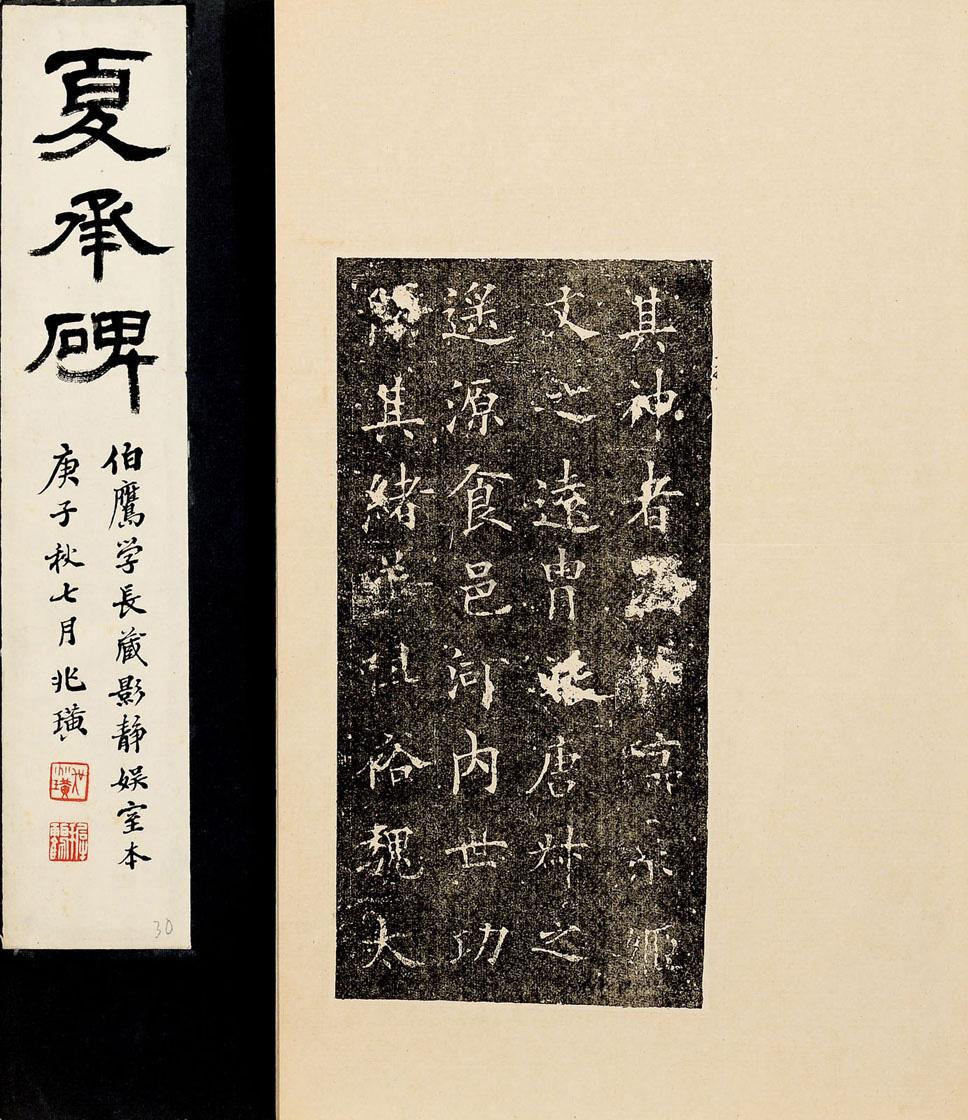 夏承碑
伯鷹学長蔵影静娱室本
庚子秋七月兆璜
30
其神者
文之遠胄 唐叔之
遥源食邑河内世功
其緒 裕魏太